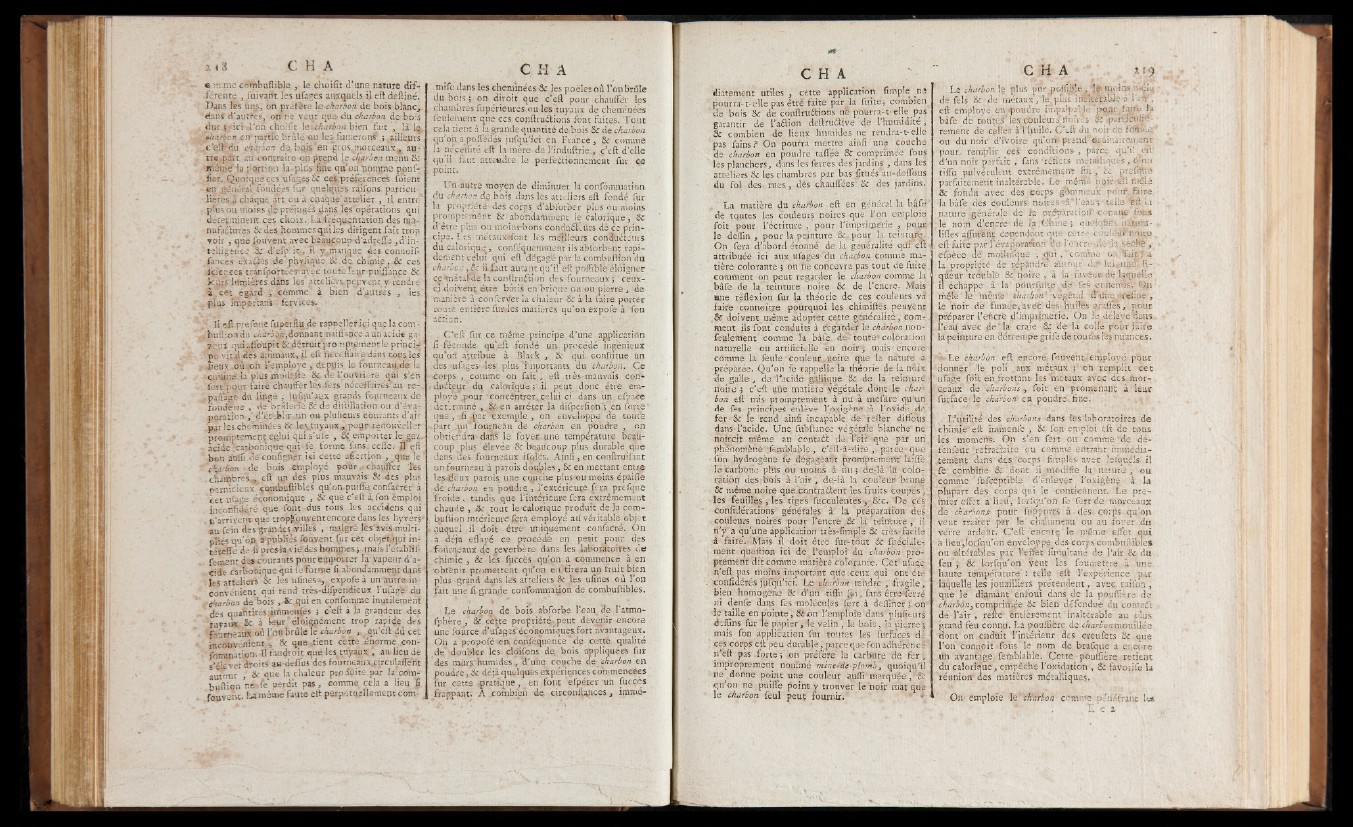 218 C H A
comme combustible, le choisit d'une nature dif-
férente, suivant les usages auxquels il est destiné.
Dans les uns, on préfère le charbon de bois blanc,
dans d'autres, on ne veut que du charbon de bois
dur; ici l'on choisit le charbon bien fait, là le
charbon en partie brûlé ou les fumerons; ailleurs
c'est du charbon de bois en gros morceaux, au-
tre part au contraire on prend le charbon menu &
même la portion la plus fine qu'on nomme pous-
sier. Quoique ces usages & ces préférences soient
en général fondées sur quelques raisons particu-
lières à chaque art ou à chaque attelier, il entre
plus ou moins de préjugés dans les opérations qui
déterminent ces choix. La fréquentation des ma-
nufactures & des hommes qui les dirigent fait trop
voir, que souvent avec beaucoup d'adresse, d'in-
telligence & d'esprit, il y manque des connois-
sances exactes de physique & de chimie, & ces
sciences transportées avec toute leur puissance &
leurs lumières dans les atteliers peuvent y rendre
à cet égard, comme à bien d'autres, les
plus importans services.
Il est presque superflu de rappeller ici que la com-
bustion du charbon donnant naissance à un acide ga-
zeux qui assoupit & détruit promptement le princi-
pe vital des animaux, il est nécessaire dans tous les
lieux où on l'employe, depuis le fourneau de la
cuisine la plus modeste & de l'ouvrière qui s'en
sert pour faire chauffer les fers nécessaires au re-
passage du linge, jusqu'aux grands fourneaux de
fonderie, de brûlerie & de distillation ou d'éva-
poration, d'établir un ou plusieurs courants d'air
par les cheminées & les tuyaux, pour renouveller
promptement celui qui s'use, & emporter le gaz
acide carbonique qui se forme sans cesse. Il est
bon aussi de consigner ici cette assertion, que le
charbon de bois employé pour chauffer les
chambres, est un des plus mauvais & des plus
pernicieux combustibles qu'on puisse consacrer à
cet usage économique, & que c'est à son emploi
inconsidéré que sont dus tous les accidens qui
n'arrivent que trop souvent encore dans les hyvers
au sein des grandes villes, malgré les avis multi-
pliés qu'on a publiés souvent sur cet objet qui in-
téresse de si près la vie des hommes; mais l'établis-
sement des courants pour emporter la vapeur d'a-
cide carbonique qui se forme si abondamment dans
les atteliers & les usines, expose à un autre in-
convénient qui rend très-dispendieux l'usage du
charbon de bois, & qui en consomme inutilement
des quantités immenses; c'est à la grandeur des
tuyaux & à leur éloignement trop rapide des
fourneaux où l'on brûle le charbon, qu'est dû cet
inconvénient, & que tient cette énorme con-
sommation. Il faudroit que les tuyaux, au lieu de
s'élever droits au-dessus des fourneaux circulassent
autour, & que la chaleur produite par la com-
bustion ne se perdît pas, comme cela a lieu si
souvent. La même faute est perpétuellement com-
C H A
mise dans les cheminées & les poëles où l'on brûle
du bois; on diroit que c'est pour chauffer les
chambres supérieures ou les tuyaux de cheminées
seulement que ces constructions sont faites. Tout
cela tient à la grande quantité de bois & de charbon
qu'on a possédés jusqu'ici en France, & comme
la nécessité est la mère de l'industrie, c'est d'elle
qu'il faut attendre le perfectionnement sur ce
point.
Un autre moyen de diminuer la consommation
du charbon de bois dans les atteliers est fondé sur
la propriété des corps d'absorber plus ou moins
promptement & abondamment le calorique, &
d'être plus ou moins bons conducteurs de ce prin-
cipe. Les métaux sont les meilleurs conducteurs
du calorique, conséquemment ils absorbent rapi-
dement celui qui est dégagé par la combustion du
charbon, & il faut autant qu'il est possible éloigner
ces métaux de la construction des fourneaux; ceux-
ci doivent être bâtis en brique ou en pierre, de
manière à conserver la chaleur & à la faire porter
toute entière sur les matières qu'on expose à son
action.
C'est sur ce même principe d'une application
si féconde qu'est fondé un procédé ingénieux
qu'on attribue à Black, & qui constitue un
des usages les plus importants du charbon. Ce
corps, comme on sait, est très-mauvais con-
ducteur du calorique; il peut donc être em-
ployé pour concentrer celui-ci dans un espace
déterminé, & en arrêter la dispersion; en sorte
que, si par exemple, on enveloppe de toute
part un fourneau de charbon en poudre, on
obtiendra dans le foyer une température beau-
coup plus élevée & beaucoup plus durable que
dans des fourneaux isolés. Ainsi, en construisant
un fourneau à parois doubles, & en mettant entre
les deux parois une couche plus ou moins épaisse
de charbon en poudre, l'extérieur sera presque
froide, tandis que l'intérieure sera extrêmement
chaude, & tout le calorique produit de la com-
bustion intérieure sera employé au véritable objet
auquel il doit être uniquement consacré. On
a déja essayé ce procédé en petit pour des
fourneaux de reverbère dans les laboratoires de
chimie, & les succès qu'on a commencé à en
obtenir promettent qu'on en tirera un fruit bien
plus grand dans les atteliers & les usines où l'on
fait une si grande consommation de combustibles.
Le charbon de bois absorbe l'eau de l'atmo-
sphère, & cette propriété peut devenir encore
une source d'usages économiques fort avantageux.
On a proposé en conséquence de cette qualité
de doubler les cloisons de bois appliquées sur
des murs humides, d'une couche de charbon en
poudre, & déjà quelques expériences commencées
sur cette pratique, en font espérer un succès
frappant. A combien de circonstances, immé-
C H A
diatement utiles, cette application simple ne
pourra-t-elle pas être faite par la suite; combien
de bois & de constructions ne pourra-t-elle pas
garantir de l'action destructive de l'humidité,
& combien de lieux humides ne rendra-t-elle
pas sains? On pourra mettre ainsi une couche
de charbon en poudre tassée & comprimée sous
les planchers, dans les serres des jardins, dans les
atteliers & les chambres par bas situés au-dessous
du sol des rues, dès chaussées & des jardins.
La matière du charbon est en général la bâse
de toutes les couleurs noires que l'on emploie
soit pour l'écriture, pour l'imprimerie, pour
le dessin, pour la peinture & pour la teinture.
On sera d'abord étonné de la généralité qui est
attribuée ici aux usages du charbon comme ma-
tière colorante; on ne concevra pas tout de suite
comment on peut regarder le charbon comme la
bâse de la teinture noire & de l'encre. Mais
une réflexion sur la théorie de ces couleurs va
faire connoître pourquoi les chimistes peuvent
& doivent même adopter cette généralité, com-
ment ils sont conduits à regarder le charbon non-
seulement comme la bâse de toute coloration
naturelle ou artificielle en noir, mais encore
comme la seule couleur noire que la nature a
préparée. Qu'on se rappelle la théorie de la noix
de galle, de l'acide gallique & de la teinture
noire; c'est une matière végétale dont le char-
bon est mis promptement à nu à mesure qu'un
de ses principes enlève l'oxigène à l'oxide de
fer & le rend ainsi incapable de rester dissous
dans l'acide. Une substance végétale blanche ne
noircit même au contact de l'air que par un
phénomène semblable, c'est-à-dire, parce que
son hydrogène se dégageant promptement laisse
le carbone plus ou moins à nu; de-là la colo-
ration des bois à l'air, de-là la couleur brune
& même noire que contractent les fruits coupés,
les feuilles, les tiges succulentes, &c. De ces
considérations générales à la préparation des
couleurs noires pour l'encre & la teinture, il
n'y a qu'une application très-simple & très-facile
à faire. Mais il doit être sur-tout & spéciale-
ment question ici de l'emploi du charbon pro-
prement dit comme matière colorante. Cet usage
n'est pas moins important que ceux qui ont été
considérés jusqu'ici. Le charbon tendre, fragile,
bien homogène & d'un tissu fin, sans être serré
ni dense dans ses molécules sert à dessiner; on
le taille en pointe, & on l'emploie dans plusieurs
dessins sur le papier, le velin, le bois, la pierre;
mais son application sur toutes les surfaces de
ces corps est peu durable, parce que son adhérence
n'est pas forte; on préfère le carbure de fer,
improprement nommé mine de plomb, quoiqu'il
ne donne point une couleur aussi marquée, &
qu'on ne puisse point y trouver le noir mat que
le charbon seul peut fournir.
C H A 219
Le charbon le plus pur possible, le moins
de sels & de métaux, le plus inaltérable à
est employé en poudre impalpable pour faire la
bâse de toutes les couleurs noires & particuliè-
rement de celles à l'huile. C'est du noir de fumée
ou du noir d'ivoire qu'on prend ordinairement
pour remplir ces conditions, parce qu'il est
d'un noir parfait, sans reflets métalliques, d'un
tissu pulvérulent extrêmement fin, & presque
parfaitement inaltérable. Le même noir est mêlé
& fondu avec des corps gommeux pour faire
la bâse des couleurs noires à l'eau; telle est la
nature générale de la préparation connue sous
le nom d'encre de la Chine; quelques natura-
listes assurent cependant que cette couleur noire
est faite par l'évaporation de l'encre de la sèche,
espèce de mollusque, qui, comme on sait, a
la propriété de répandre autour de lui une li-
queur trouble & noire, à la faveur de laquelle
il échappe à la poursuite de ses ennemis. On
mêle le même charbon végétal très-fin,
le noir de fumée, avec des huiles grasses, pour
préparer l'encre d'imprimerie. On le délaye dans
l'eau avec de la craie & de la colle pour faire
la peinture en détrempe grise de toutes les nuances.
Le charbon est encore souvent employé pour
donner le poli aux métaux; on remplit cet
usage soit en frottant les métaux avec des mor-
ceaux de charbons, soit en promenant à leur
surface le charbon en poudre fine.
L'utilité des charbons dans les laboratoires de
chimie est immense, & son emploi est de tous
les momens. On s'en sert ou comme de dé-
fenseur refractaire ou comme entrant immédia-
tement dans des corps simples avec lesquels il
se combine & dont il modifie la nature, ou
comme susceptible d'enlever l'oxigène à la
plupart des corps qui le contiennent. Le pre-
mier effet a lieu, lorsqu'on se sert de morceaux
de charbons pour supports à des corps qu'on
veut traiter par le chalumeau ou au foyer du
verre ardent. C'est encore le même effet qui
a lieu, lorsqu'on enveloppe des corps combustibles
ou altérables par l'effet simultané de l'air & du
feu, & lorsqu'on veut les soumettre à une
haute température: telle est l'expérience par
laquelle les jouailliers prétendent, avec raison,
que le diamant enfoui dans de la poussière de
charbon, comprimée & bien défendue du contact
de l'air, reste entièrement inaltérable au plus
grand feu connu. La poussière de charbon mouillée
dont on enduit l'intérieur des creusets & que
l'on connoit sous le nom de brasque a encore
un avantage semblable. Cette poussière retient
du calorique, empêche l'oxidation, & favorise la
réunion des matières métalliques.
On emploie le charbon comme pénétrant les
E e 2